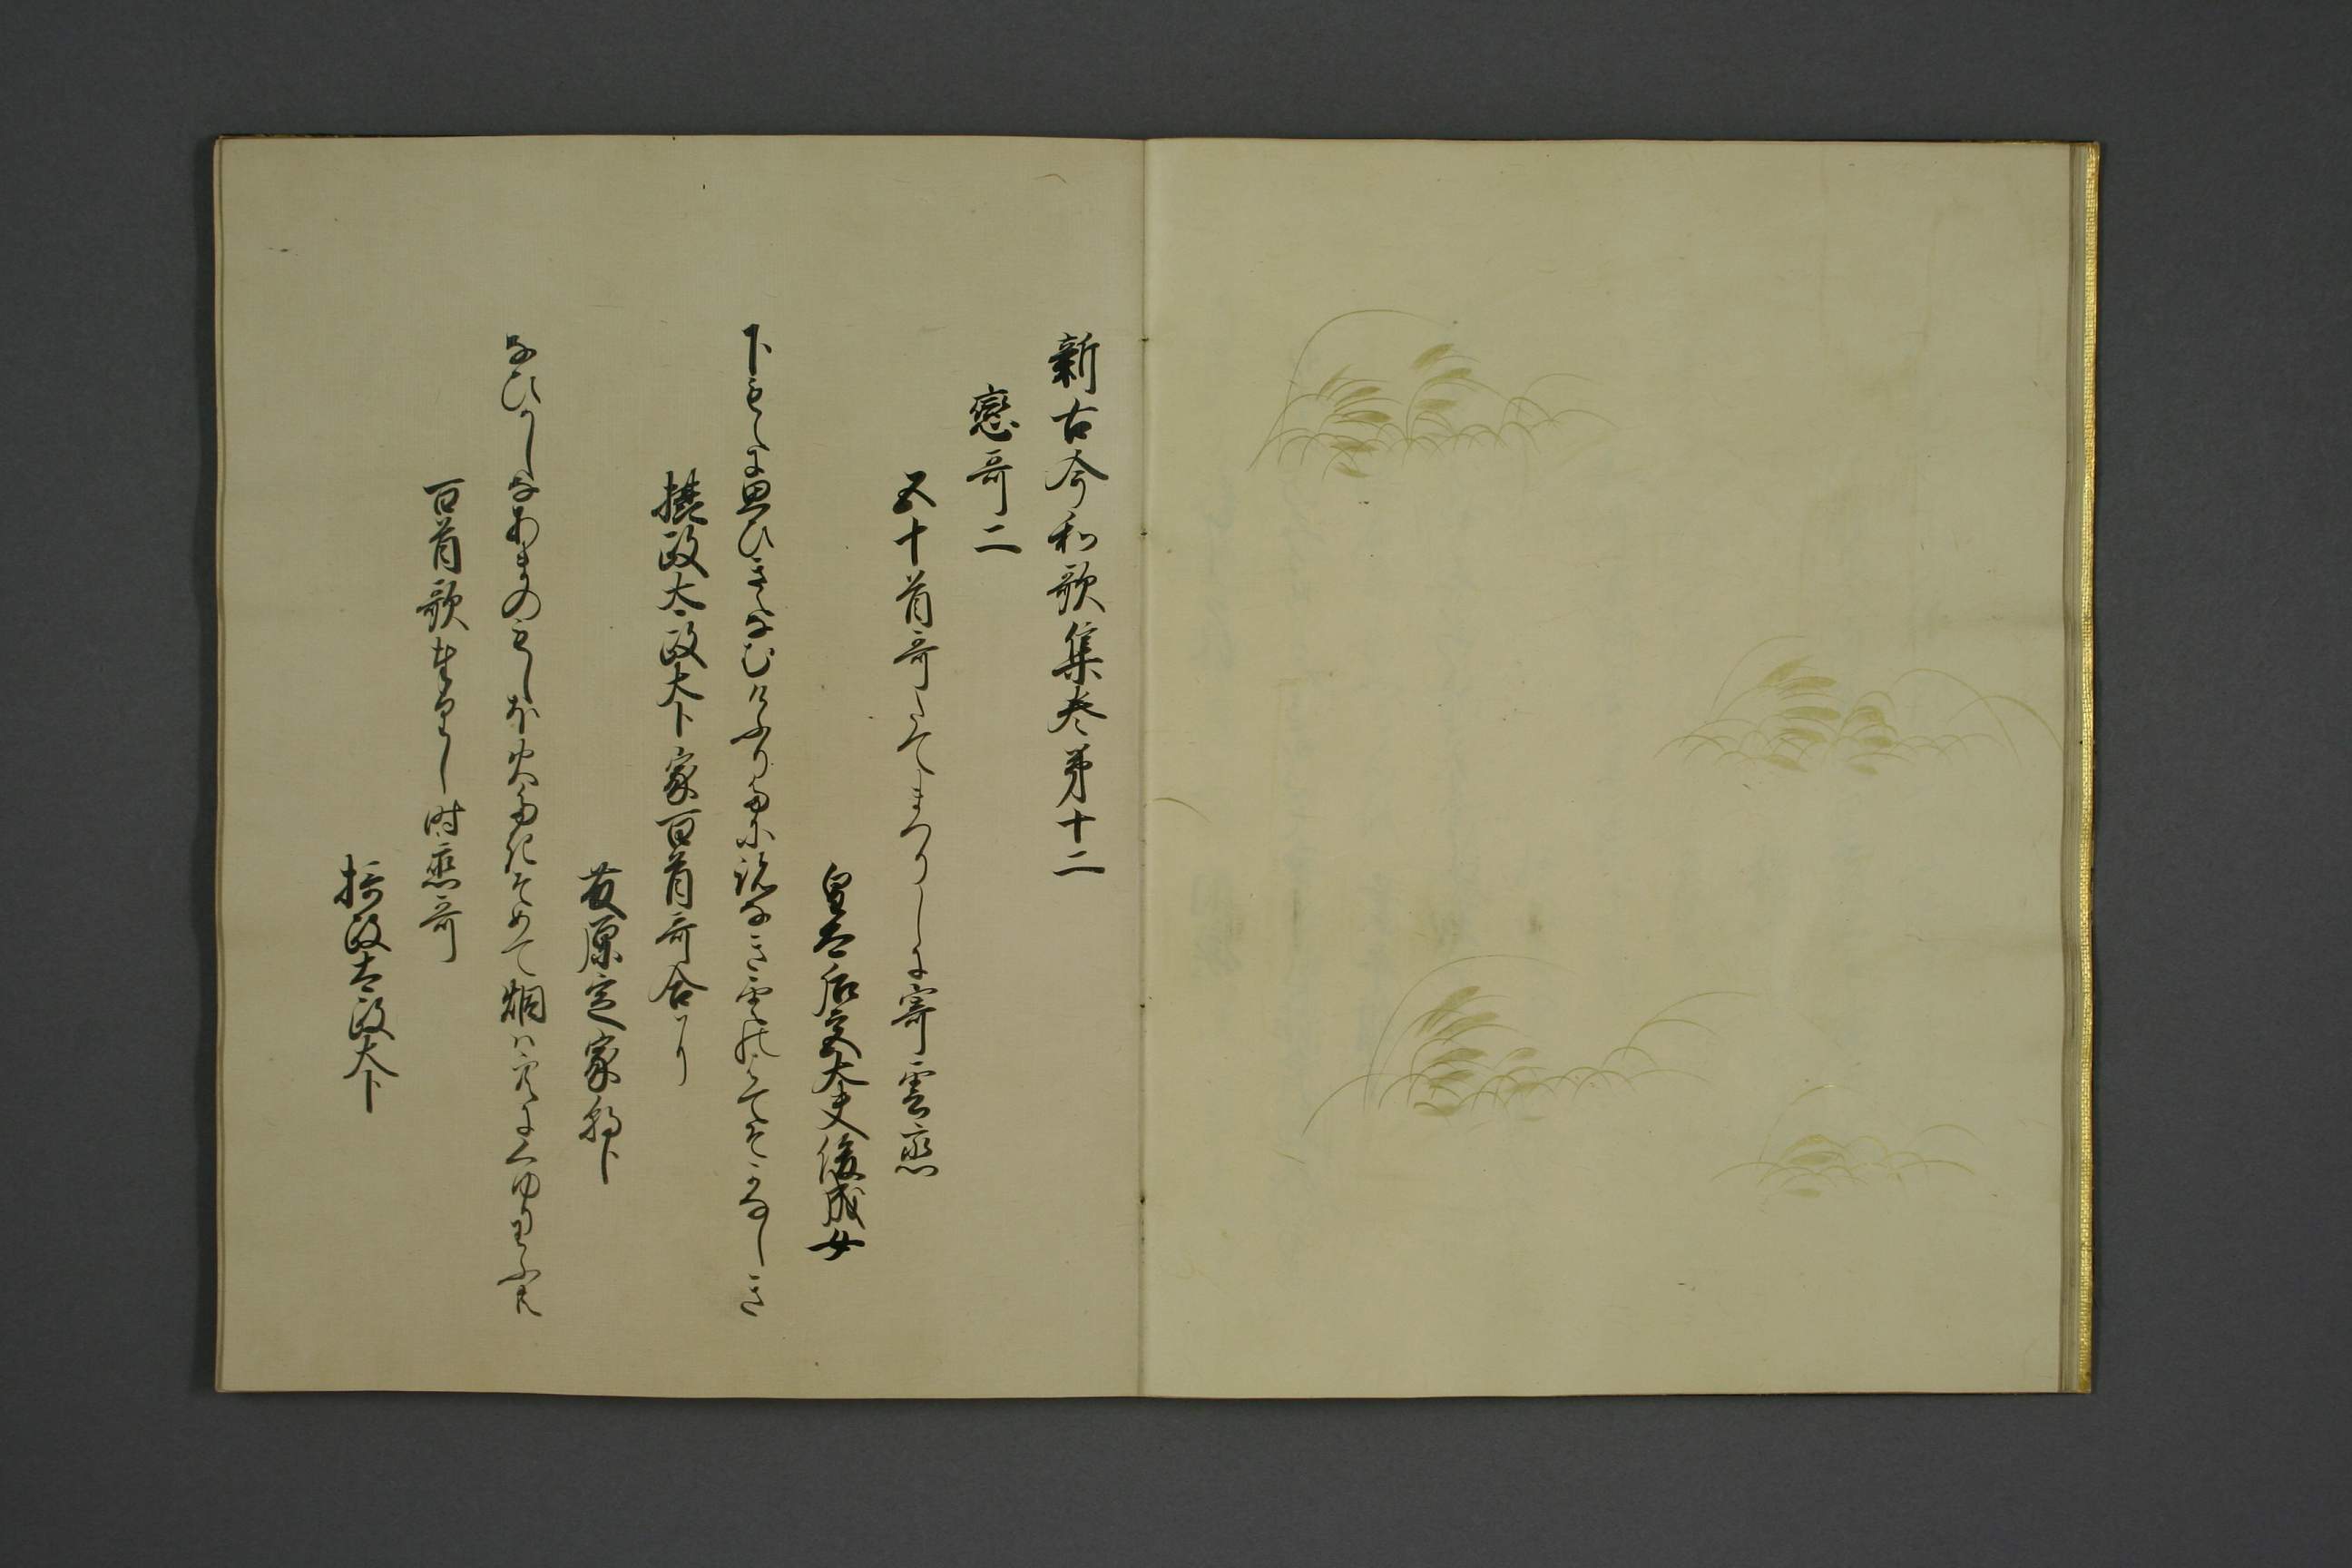 新古今和歌集巻第十二
戀哥二
五十首哥たてまつりしに寄雲戀
皇太后宮大夫俊成女
下もえに思ひきえなむけふりたに跡なき雲のはてそかなしき
摂政太政大臣家百首哥合に
藤原定家朝臣
なひかしなあまのもしほ火たきそめて烟は空にくゆりわふとも
百首歌奉りし時戀哥
摂政太政大臣